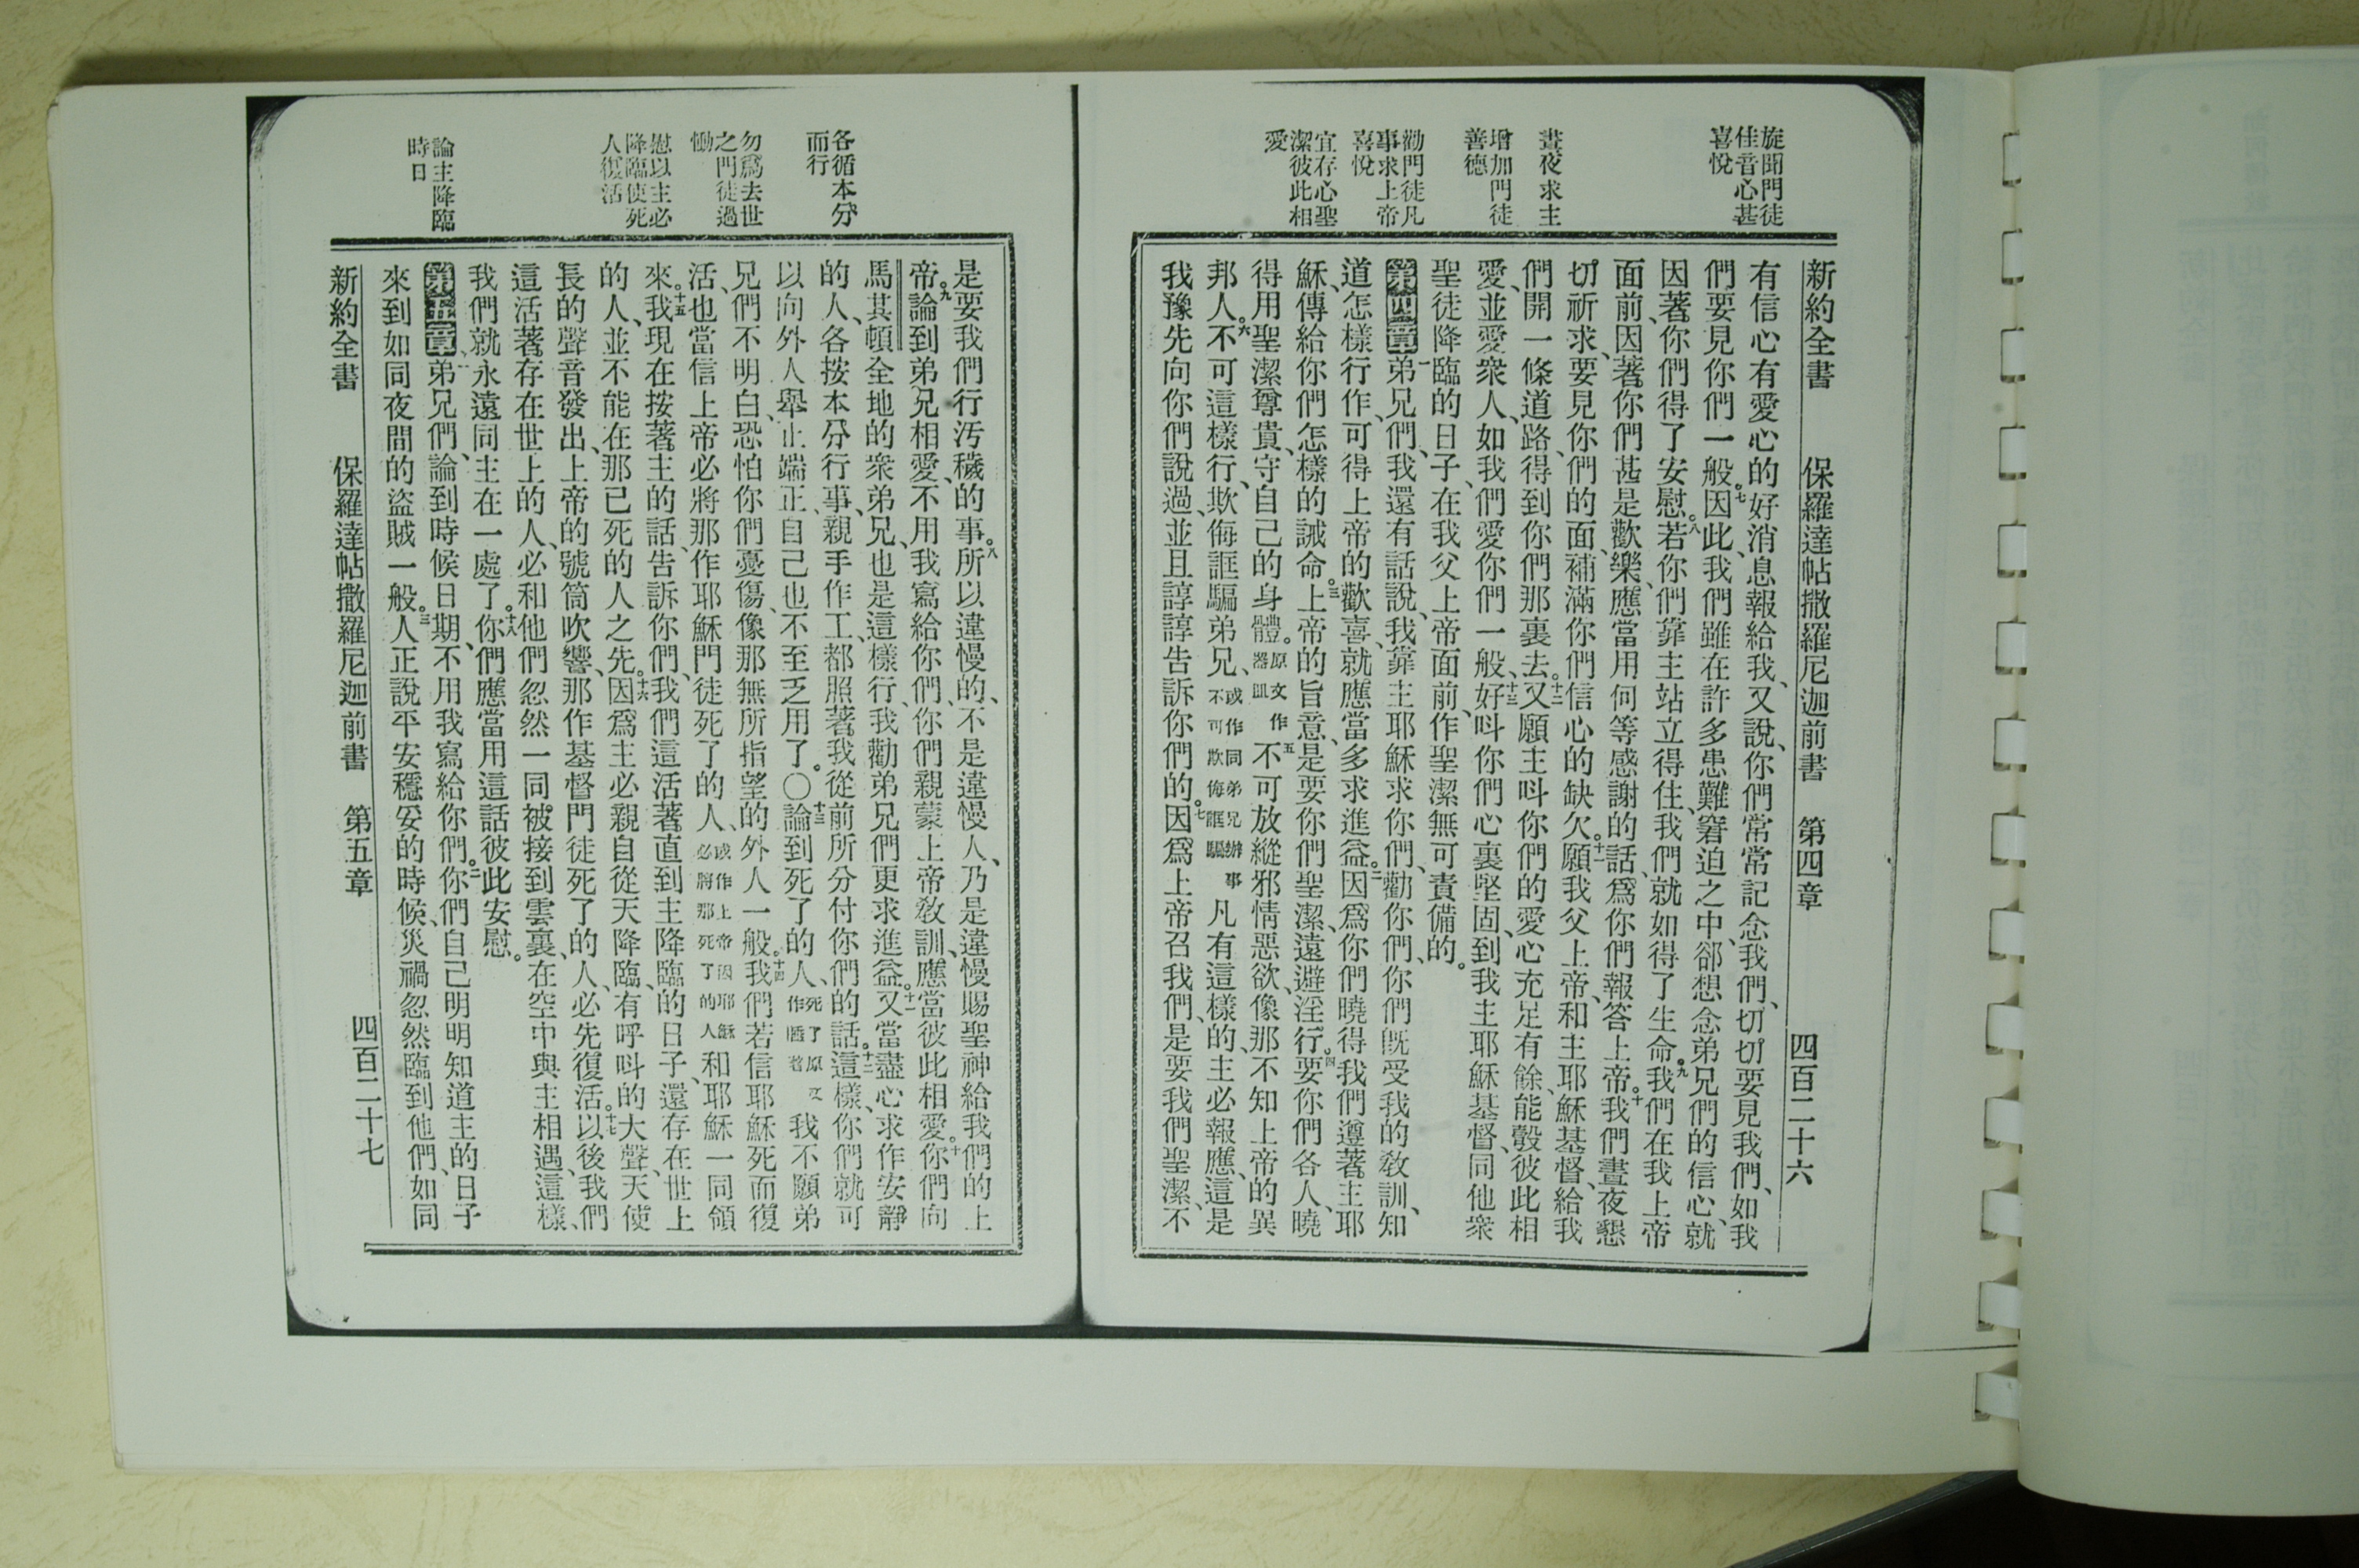 旋聞門徒
佳音心甚
喜悅
晝夜求主
增加門徒
善德
勸門徒凡
事求上帝
喜悅
宜存心聖
潔彼此相
愛
新約全書 保羅達帖撒羅尼迦前書 第四章 四百二十六
有信心有愛心的好消息報給我、又說、你們常常記念我們、切切要見我們、如我
們要見你們一般。七因此、我們雖在許多患難窘迫之中、卻想念弟兄們的信心、就
因著你們得了安慰。八若你們靠主站立得住、我們就如得了生命。九我們在我上帝
面前、因著你們甚是歡樂、應當用何等感謝的話、爲你們報答上帝。十我們晝夜懇
切祈求、要見你們的面、補滿你們信心的缺欠。十一願我父上帝、和主耶穌基督、給我
們開一條道路、得到你們那裏去。十二又願主呌你們的愛心充足有餘、能彀彼此相
愛、並愛衆人、如我們愛你們一般。十三好呌你們心裏堅固、到我主耶穌基督、同他衆
聖徒降臨的日子、在我父上帝面前、作聖潔無可責備的。
第四章一弟兄們、我還有話說、我靠主耶穌求你們、勸你們、你們旣受我的敎訓、知
道怎樣行作、可得上帝的歡喜、就應當多求進益。二因爲你們曉得我們遵著主耶
穌、傳給你們怎樣的誡命。三上帝的旨意、是要你們聖潔、遠避淫行。四要你們各人、曉
得用聖潔尊貴、守自己的身體。原文作器皿五不可放縱邪情惡欲、像那不知上帝的異
邦人。六不可這樣行、欺侮誆騙弟兄、或作同弟兄辦事不可欺侮誆騙凡有這樣的、主必報應、這是
我豫先向你們說過、並且諄諄告訴你們的。七因爲上帝召我們、是要我們聖潔、不
各循本分
而行
勿爲去世
之門徒過
慟
慰以主必
降臨使死
人復活
論主降臨
時日
是要我們行汚穢的事。八所以違慢的、不是違慢人、乃是違慢賜聖神給我們的上
帝。九論到弟兄相愛、不用我寫給你們、你們親蒙上帝敎訓、應當彼此相愛。十你們向
馬其頓全地的衆弟兄、也是這樣行、我勸弟兄們更求進益。十一又當盡心求作安靜
的人、各按本分行事、親手作工、都照著我從前所分付你們的話。十二這樣、你們就可
以向外人舉止端正、自己也不至乏用了。〇十三論到死了的人、死了原文作睡著我不願弟
兄們不明白、恐怕你們憂傷、像那無所指望的外人一般。十四我們若信耶穌死而復
活、也當信上帝必將那作耶穌門徒死了的人、或作上帝因耶穌必將那死了的人和耶穌一同領
來。十五我現在按著主的話、告訴你們、我們這活著直到主降臨的日子、還存在世上
的人、並不能在那已死的人之先。十六因爲主必親自從天降臨、有呼呌的大聲、天使
長的聲音發出、上帝的號筒吹響、那作基督門徒死了的人、必先復活。十七以後我們
這活著存在世上的人、必和他們忽然一同被接到雲裏、在空中與主相遇、這樣、
我們就永遠同主在一處了。十八你們應當用這話彼此安慰。
第五章一弟兄們、論到時候日期、不用我寫給你們。二你們自己明明知道主的日子
來到如同夜間的盜賊一般。三人正說平安穩妥的時候、災禍忽然臨到他們、如同
新約全書 保羅達帖撒羅尼迦前書 第五章 四百二十七